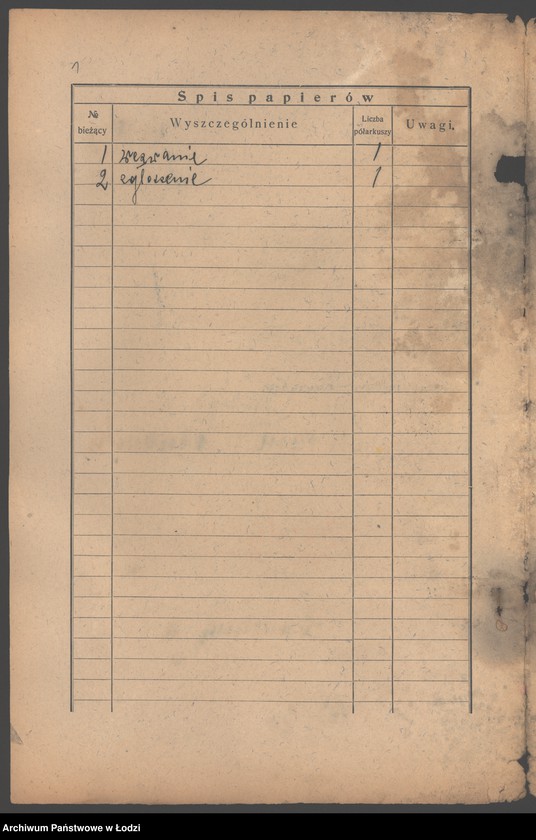 1
Spis papierów
№ bieżący Wyszczególnienie Liczba półarkuszy Uwagi.
1 wezwanie 1
2 ogłoszenie 1
Archiwum Państwowe w Łodzi